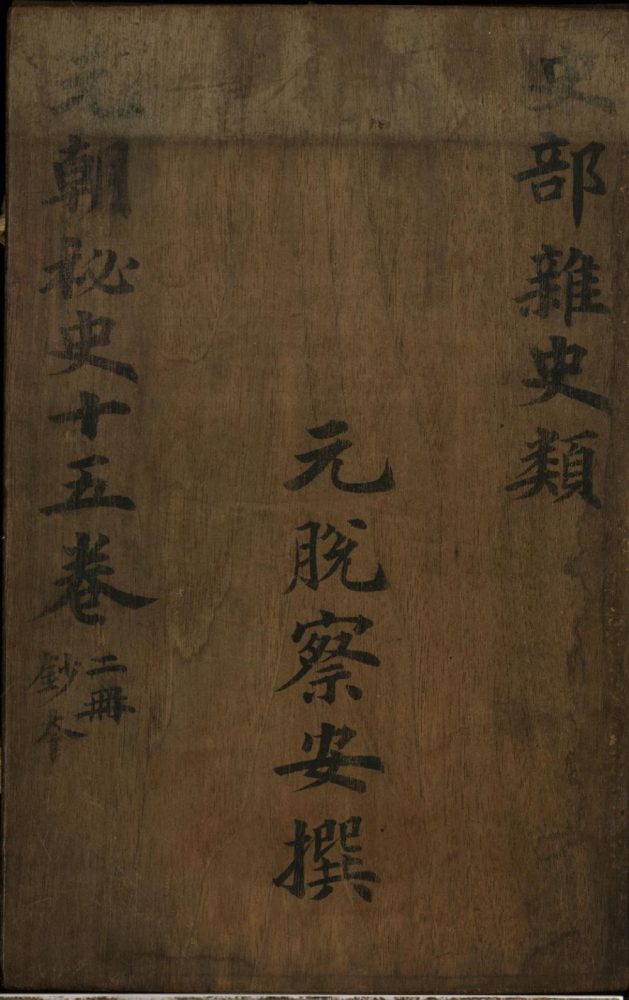 史部雜史類
元脱察安撰
元朝秘史十五卷
二冊
鈔本